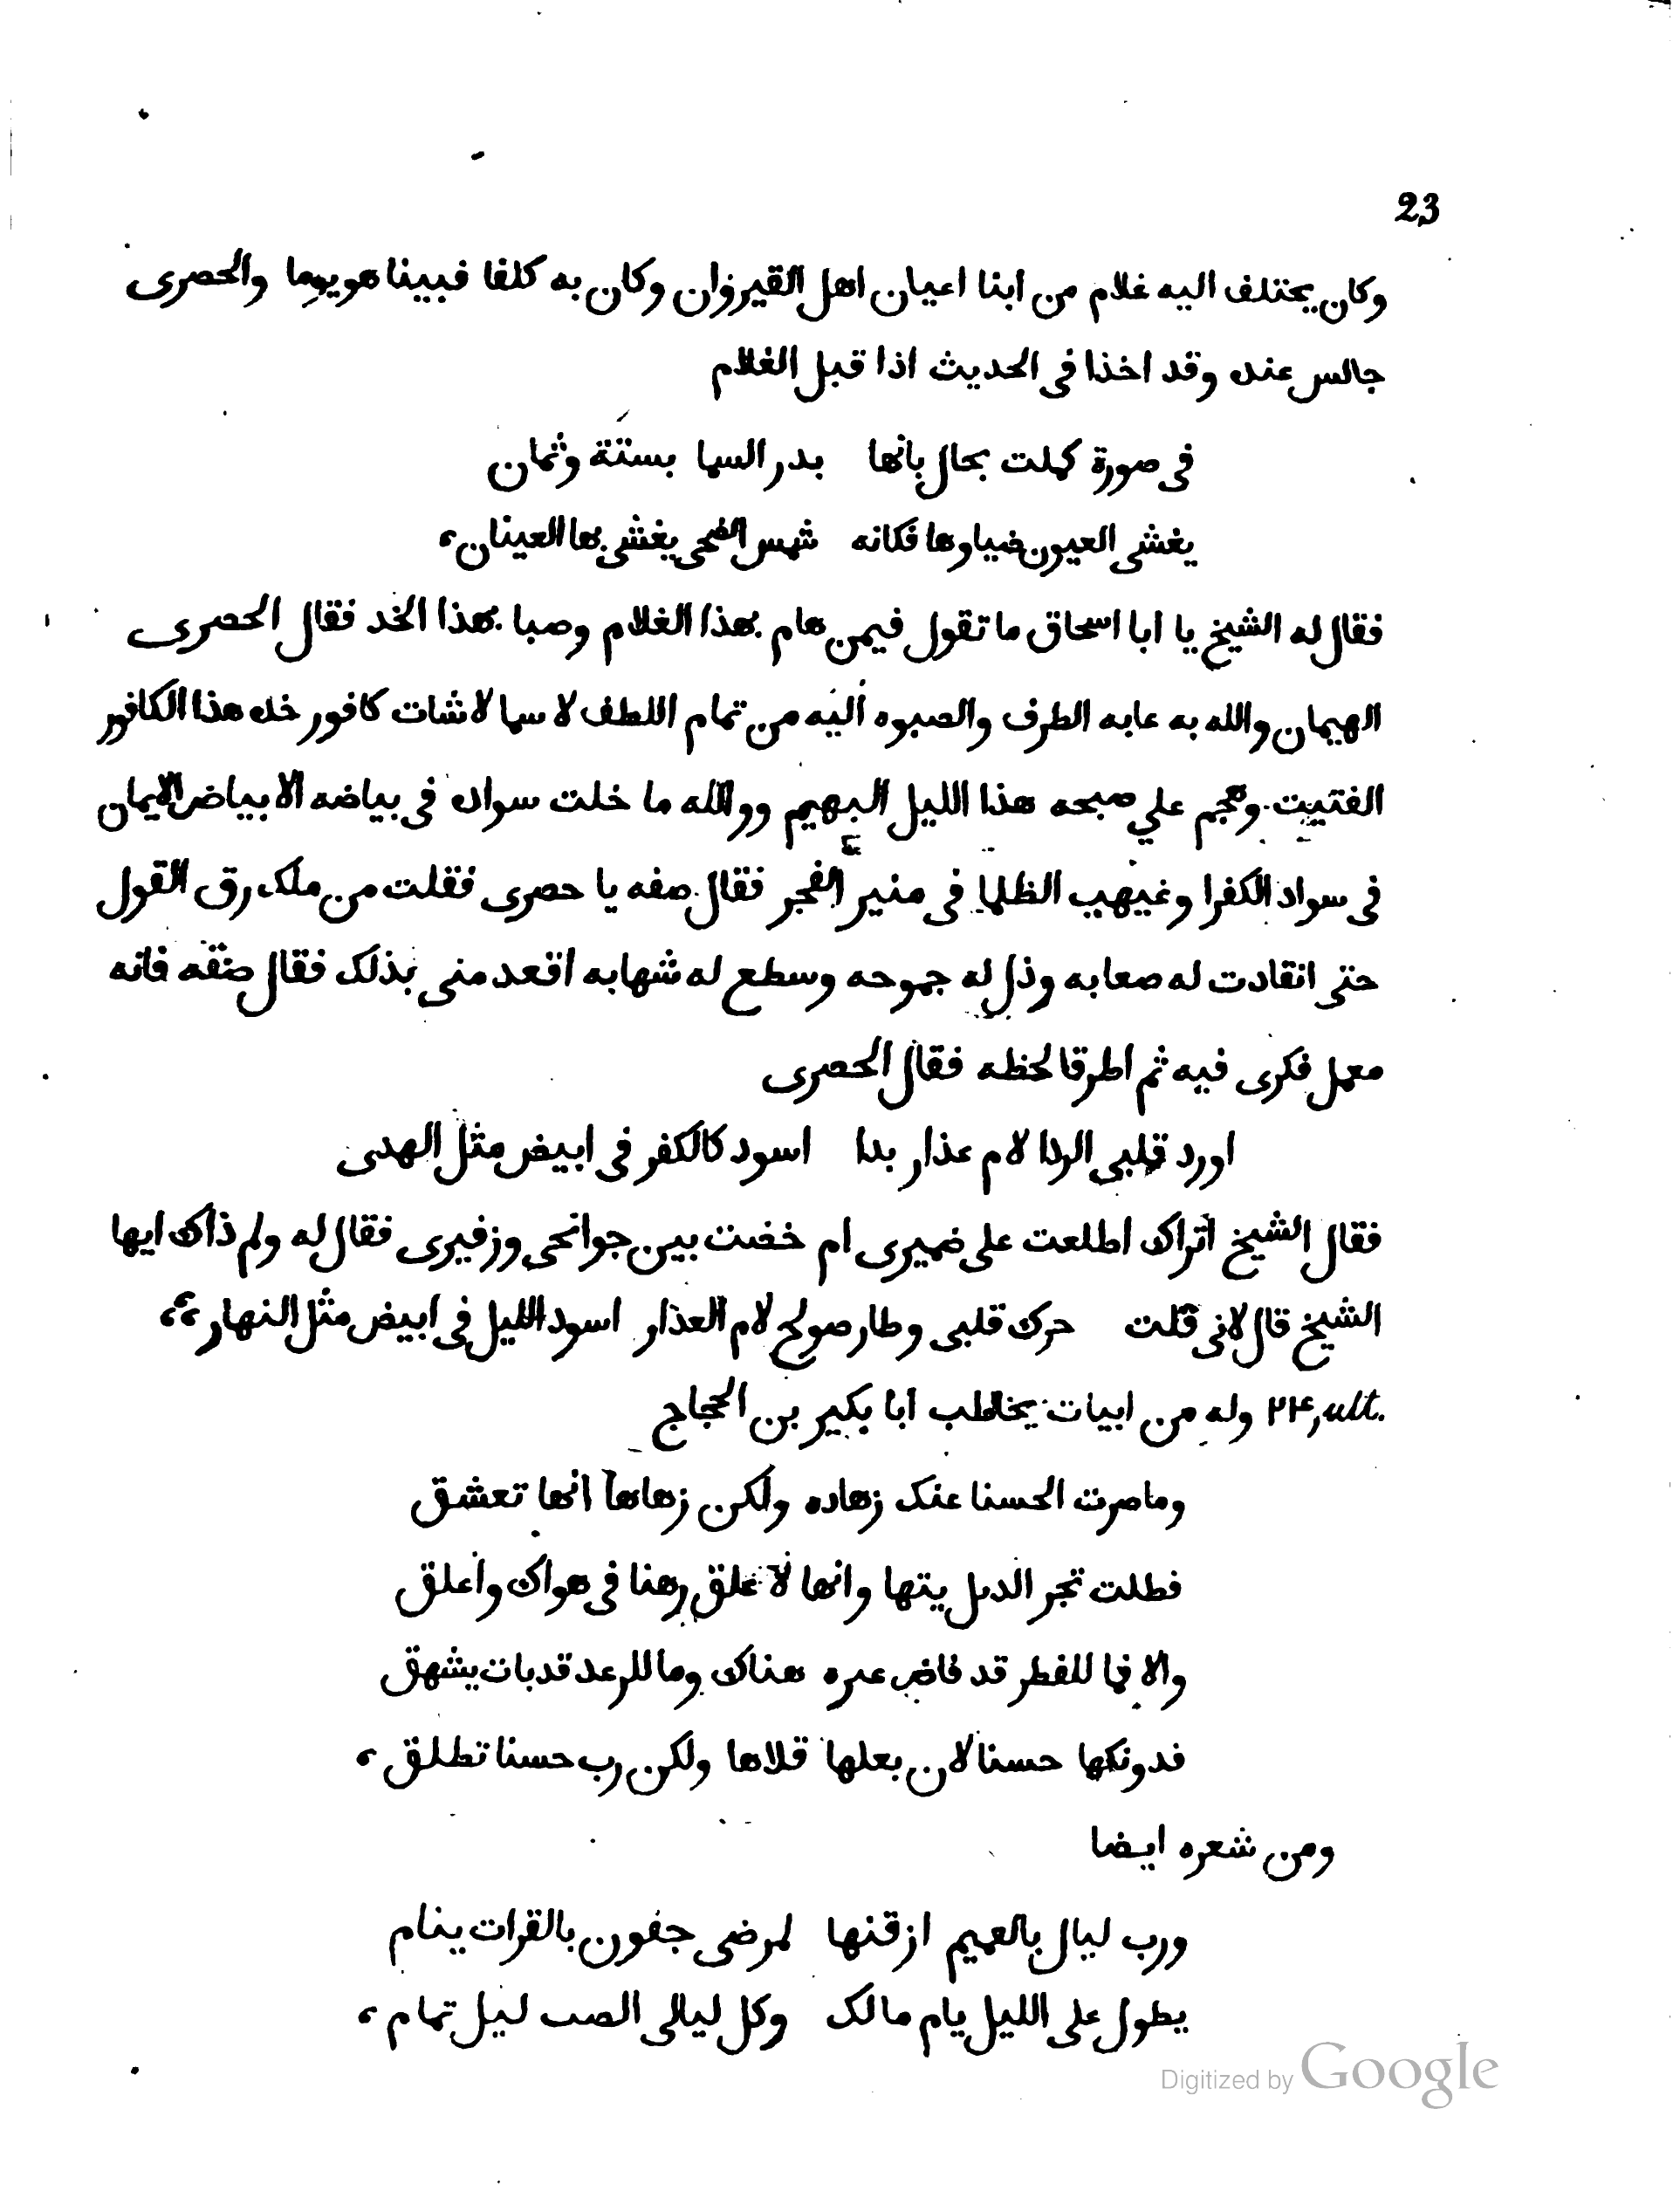 23
وكان يختلف اليه غلام من ابنا اعيان اهل القيروان وكان به كلفا فبينا هو يوما والحصرى
جالس عنده وقد اخذا فى الحديث اذا قبل الغلام
فى صورة كملت بحال بانها بدر السما بستة وثمان
يغشى العيون ضياوها فكانه شمس الضحى يغشى بها العينان،
فقال له الشيخ يا ابا اسحاق ما تقول فيمن هام بهذا الغلام وصبا بهذا الخد فقال الحصرى
الهيمان والله به غايه الطرف والصبوه اليه من تمام اللطف لا سيما لا شات كافور خده هذا الكافور
الفتيت وهجم علي صبحه هذا الليل البهيم ووالله ما خلت سواده فى بياضه الا بياض الايمان
فى سواد الكفرا وغيهب الظلما فى منير الفجر فقال صفه يا حصرى فقلت من ملك رق القول
حتى انقادت له صعابه وذل له جموحه وسطع له شهابه اقعد منى بذلك فقال صفه فانه
معمل فكرى فيه ثم اطرقا لحظه فقال الحصرى
اورد قلبى الردا لام عذار بدا اسود كالكفر فى ابيض مثل الهدى
فقال الشيخ اتراك اطلعت على ضميرى ام خضت بين جوانحى وزفيرى فقال له ولم ذاك ايها
الشيخ قال لانى قلت حرك قلبى وطار صولج لام العذار اسود الليل فى ابيض مثل النهار،،
٢٣, ult. وله من ابيات يخاطب ابا بكير بن الحجاج
وما صرت الحسنا عنك زهاده ولكن زهاها انها تعشق
فطلت تجر الديل يتها وانها لا علق رهنا فى هواك واعلق
والا فما للفطر قد فاض عبره هناك وما للرعد قد بات يشهق
فدونكها حسنا لان بعلها قلاها ولكن رب حسنا تطلق،
ومن شعره ايضا
ورب ليال بالعميم ازقنها لمرضى جفون بالقرات ينام
يطول على الليل يام مالك وكل ليالى الصب ليل تمام،
Digitized by Google